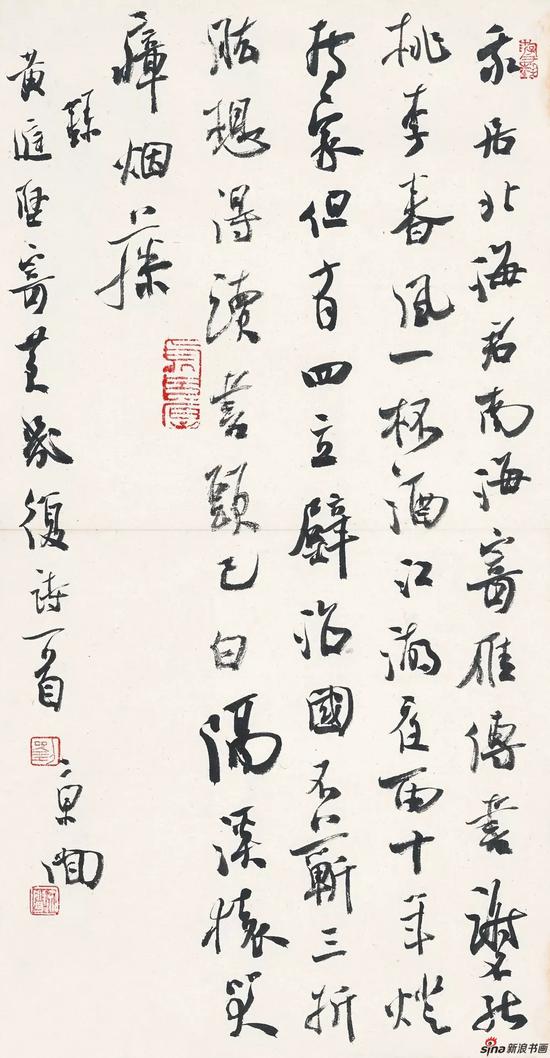 我居北海君南海寄雁傳書謝不能
桃李春風一杯酒江湖夜雨十年燈
持家但有四立壁治國不蘄三折
肱想得讀書頭已白隔溪猿哭
瘴烟藤
錄
黄庭堅寄黄幾復詩一首 京聞
sina新浪书画